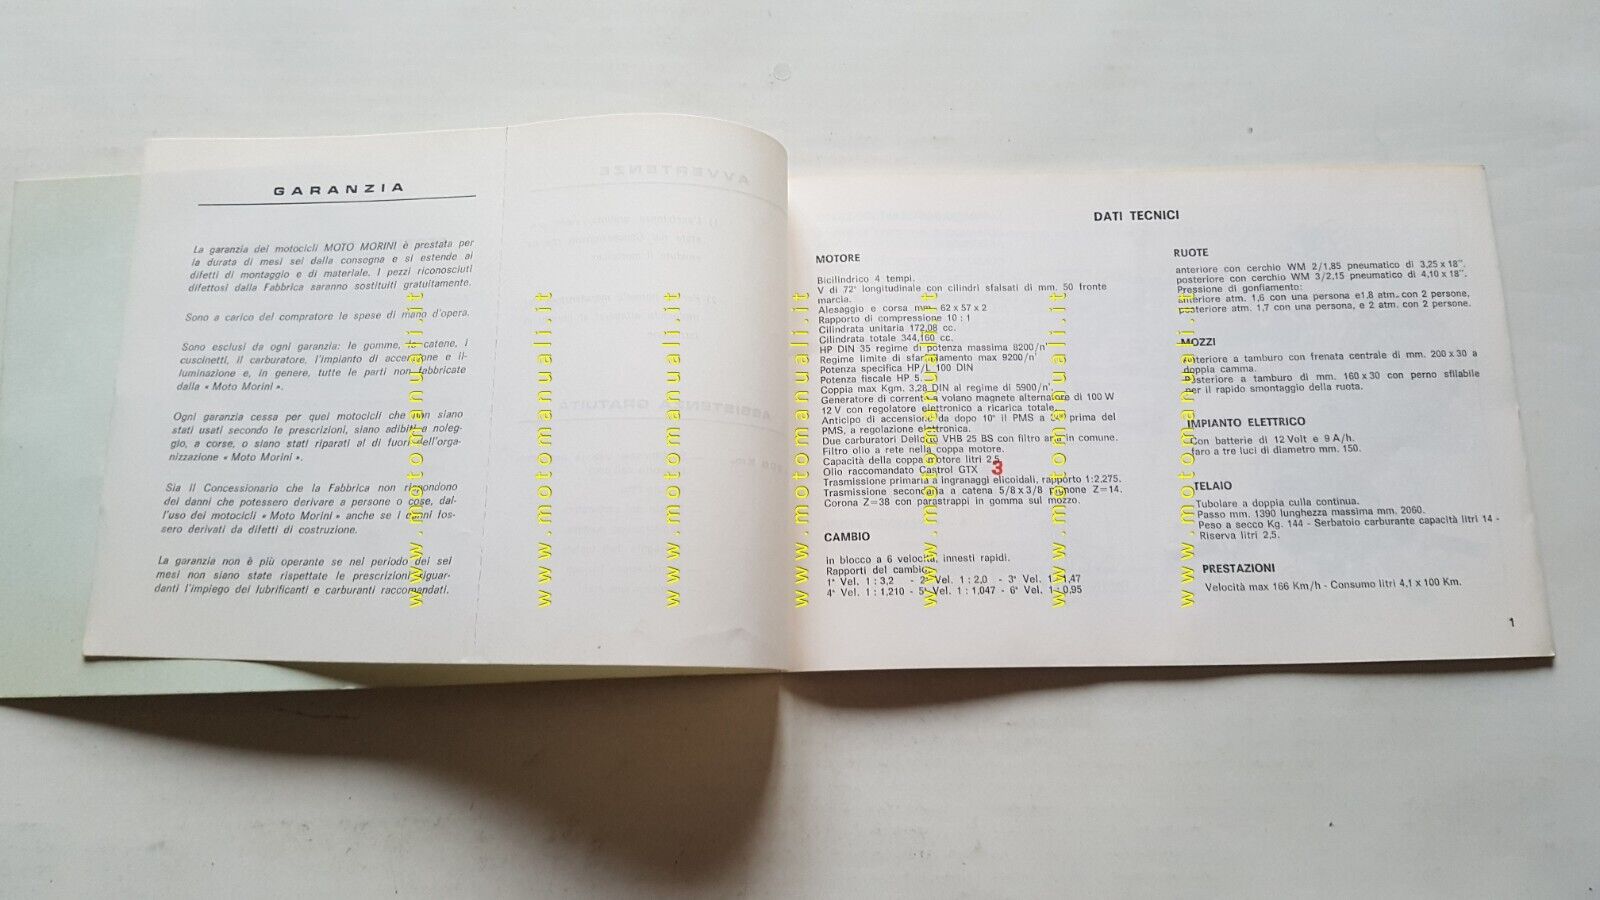 GARANZIA
La garanzia dei motocicli MOTO MORINI è prestata per
la durata di mesi sei dalla consegna e si estende ai
difetti di montaggio e di materiale. I pezzi riconosciuti
difettosi dalla Fabbrica saranno sostituiti gratuitamente.
Sono a carico del compratore le spese di mano d'opera.
Sono esclusi da ogni garanzia: le gomme, le catene, i
cuscinetti, il carburatore, l'impianto di accensione e il-
luminazione e, in genere, tutte le parti non fabbricate
dalla « Moto Morini ».
Ogni garanzia cessa per quei motocicli che non siano
stati usati secondo le prescrizioni, siano adibiti a noleg-
gio, a corse, o siano stati riparati al di fuori dell'orga-
nizzazione « Moto Morini ».
Sia il Concessionario che la Fabbrica non rispondono
dei danni che potessero derivare a persone o cose, dal-
l'uso dei motocicli « Moto Morini » anche se i danni fos-
sero derivati da difetti di costruzione.
La garanzia non è più operante se nel periodo dei sei
mesi non siano state rispettate le prescrizioni riguar-
danti l'impiego dei lubrificanti e carburanti raccomandati.
AVVERTENZE
ASSISTENZA GRATUITA
DATI TECNICI
MOTORE
Bicilindrico 4 tempi.
V di 72° longitudinale con cilindri sfalsati di mm. 50 fronte
marcia.
Alesaggio e corsa mm. 62 x 57 x 2
Rapporto di compressione 10 : 1
Cilindrata unitaria 172,08 cc.
Cilindrata totale 344,160 cc.
HP DIN 35 regime di potenza massima 8200/n'
Regime limite di sfarfallamento max 9200/n'
Potenza specifica HP/L 100 DIN
Potenza fiscale HP 5.
Coppia max Kgm. 3,28 DIN al regime di 5900/n'.
Generatore di corrente a volano magnete alternatore di 100 W
12 V con regolatore elettronico a ricarica totale.
Anticipo di accensione da dopo 10° il PMS a prima del
PMS, a regolazione elettronica.
Due carburatori Dellorto VHB 25 BS con filtro aria in comune.
Filtro olio a rete nella coppa motore.
Capacità della coppa motore litri 2,5.
Olio raccomandato Castrol GTX 3
Trasmissione primaria a ingranaggi elicoidali, rapporto 1:2.275.
Trasmissione secondaria a catena 5/8 x 3/8 pignone Z=14.
Corona Z=38 con parastrappi in gomma sul mozzo.
CAMBIO
in blocco a 6 velocità, innesti rapidi.
Rapporti del cambio:
1ª Vel. 1 : 3,2 - 2ª Vel. 1 : 2,0 - 3ª Vel. 1 : 1,47
4ª Vel. 1 : 1,210 - 5ª Vel. 1 : 1,047 - 6ª Vel. 1 : 0,95
RUOTE
anteriore con cerchio WM 2/1,85 pneumatico di 3,25 x 18".
posteriore con cerchio WM 3/2,15 pneumatico di 4,10 x 18".
Pressione di gonfiamento:
anteriore atm. 1,6 con una persona e1.8 atm. con 2 persone,
posteriore atm. 1,7 con una persona, e 2 atm. con 2 persone.
MOZZI
anteriore a tamburo con frenata centrale di mm. 200 x 30 a
doppia camma.
Posteriore a tamburo di mm. 160 x 30 con perno sfilabile
per il rapido smontaggio della ruota.
IMPIANTO ELETTRICO
Con batterie di 12 Volt e 9 A/h.
faro a tre luci di diametro mm. 150.
TELAIO
Tubolare a doppia culla continua.
Passo mm. 1390 lunghezza massima mm. 2060.
Peso a secco Kg. 144 - Serbatoio carburante capacità litri 14 -
Riserva litri 2,5.
PRESTAZIONI
Velocità max 166 Km/h - Consumo litri 4,1 x 100 Km.
1
www.motomanuali.it
www.motomanuali.it
www.motomanuali.it
www.motomanuali.it
www.motomanuali.it
www.motomanuali.it
www.motomanuali.it